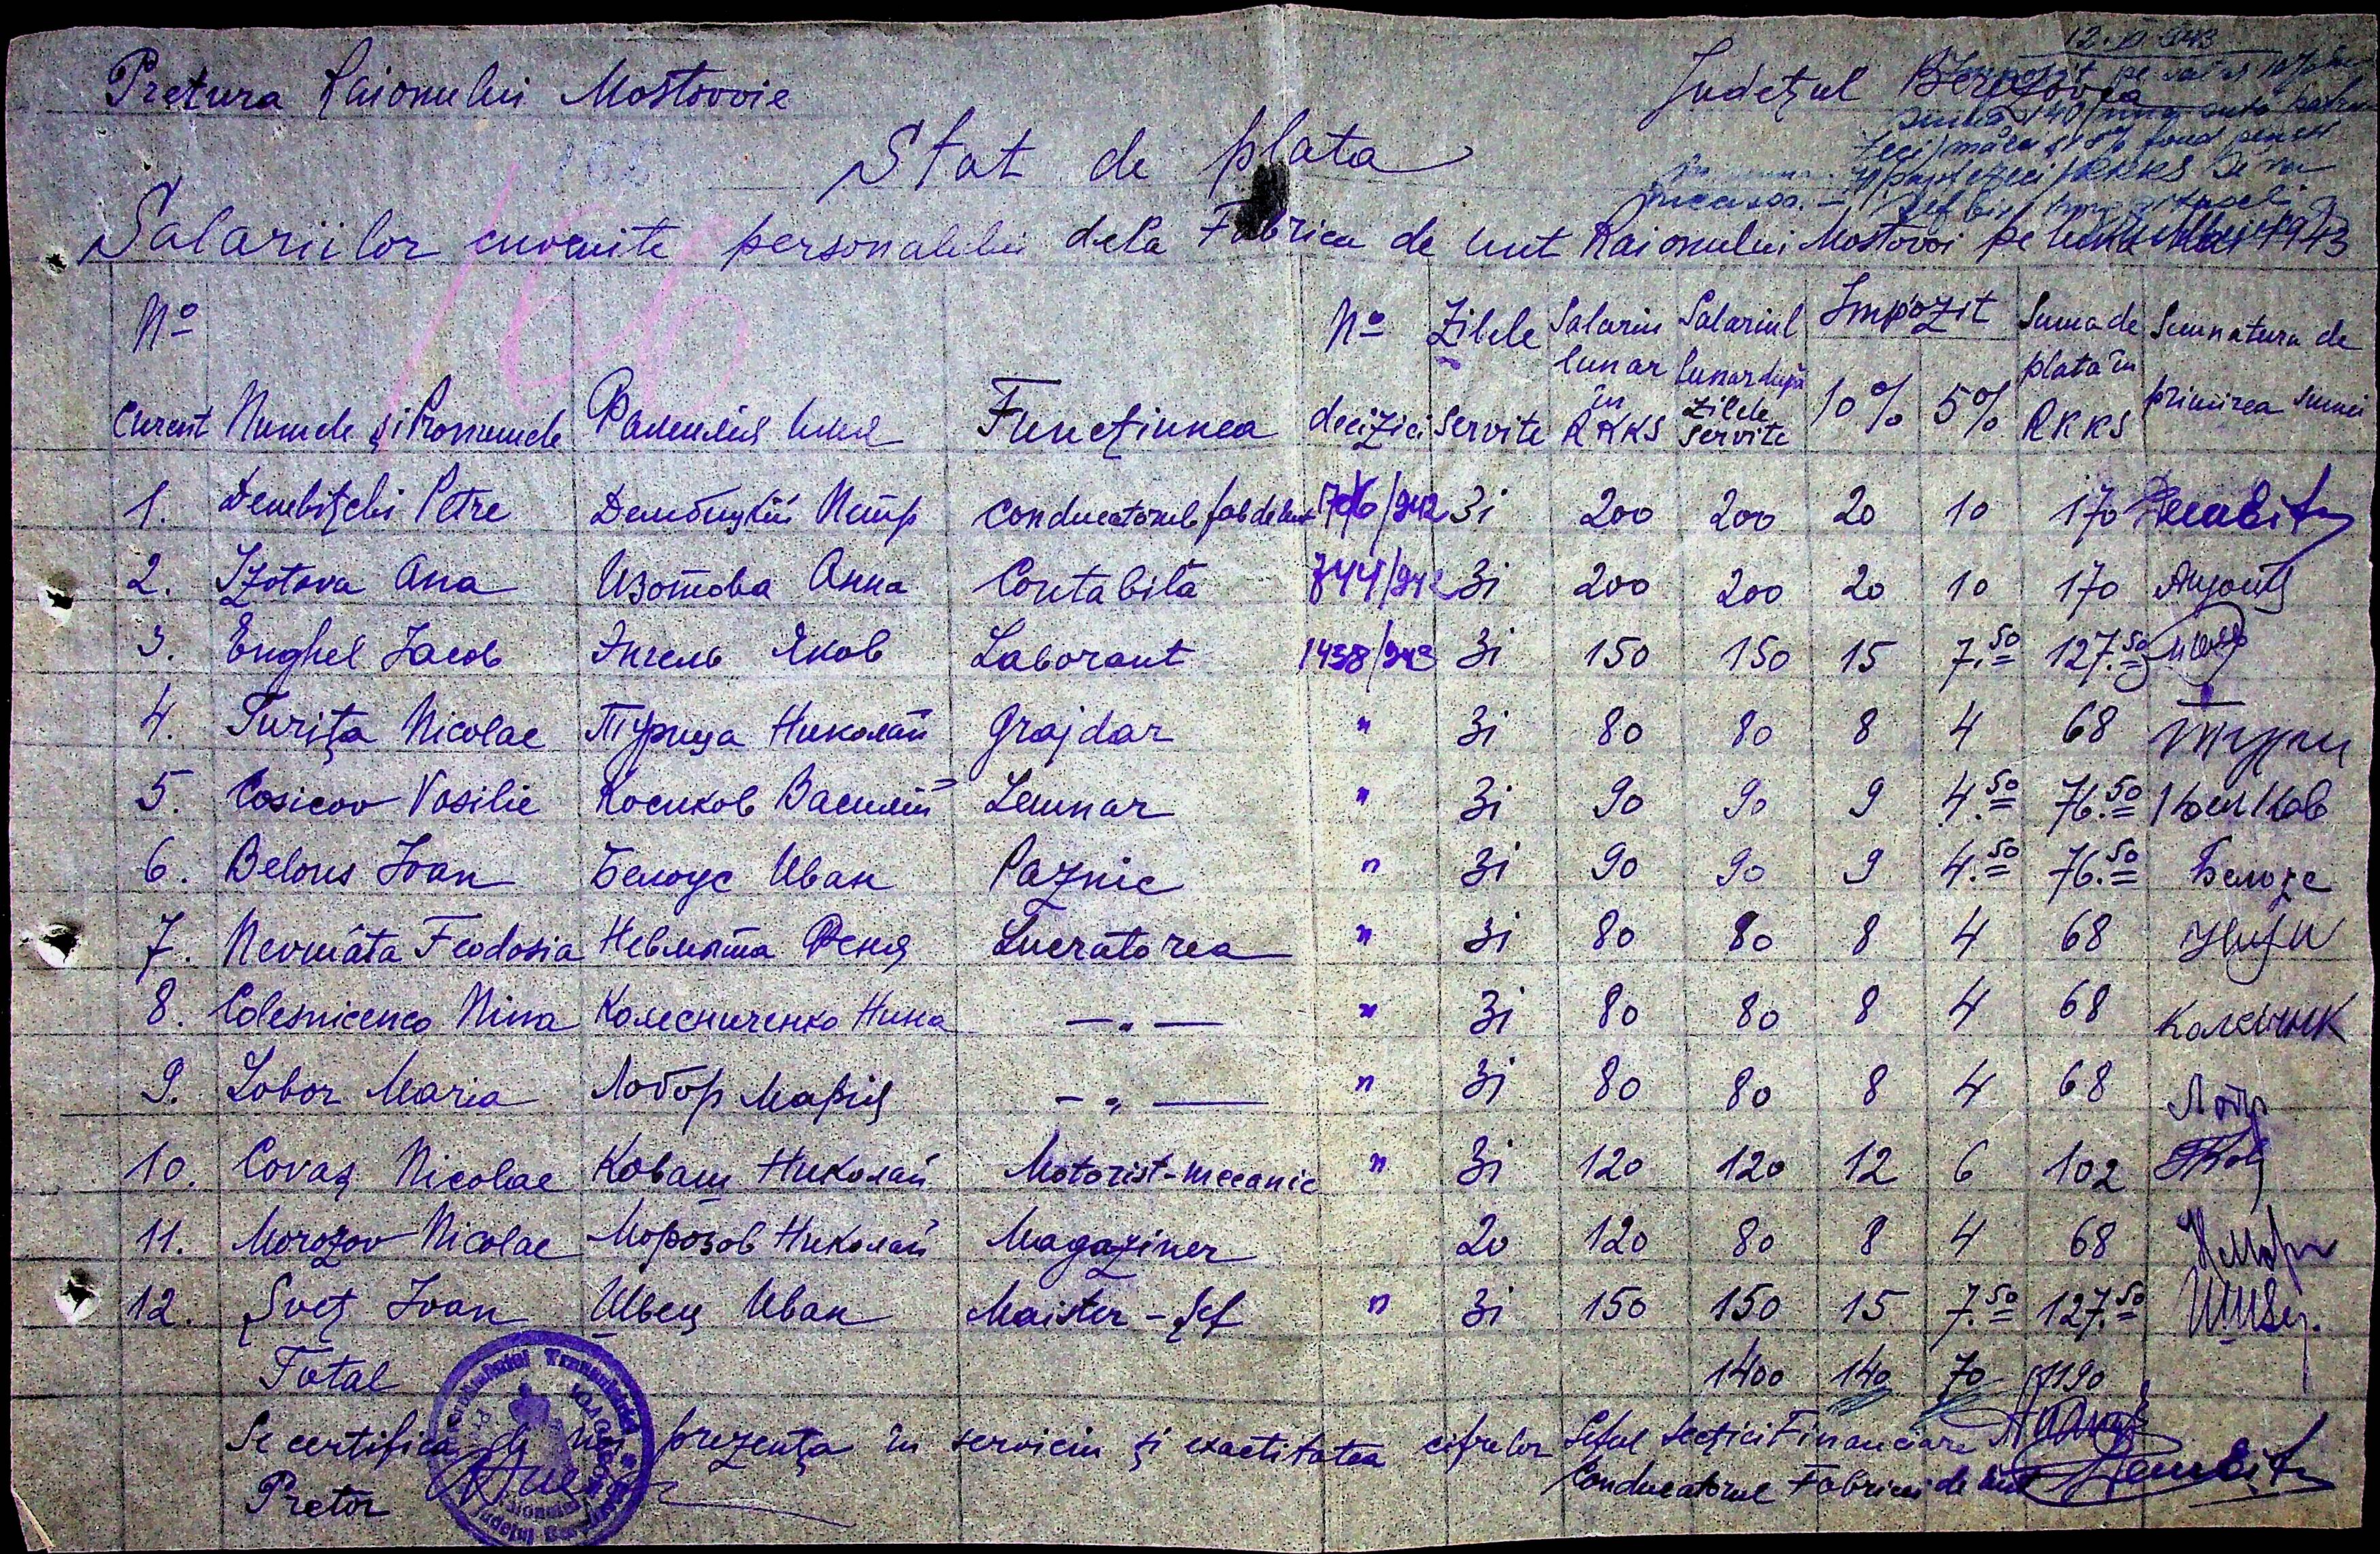 Pretura Raionului Mostovoie
Județul Berezovca
12.
Stat de plata
Salariilor cuvenite personalului dela Fabrica de unt Raionului Mostovoi pe luna Mai 1943
No Curent Numele și Pronumele Фамилия Имя Funcțiunea No deciziei Zilele Servite Salariu lunar în RKKS Salariul lunar după zilele servite Impozit 10% 5% Suma de plata în RKKS Semnatura de primirea sumei
1. Dembițchi Petre Дембицкій Петр conducatorul fab de unt /942 31 200 200 20 10 170
2. Izotova Ana Изотова Анна Contabilă 744/942 31 200 200 20 10 170
3. Enghel Iacob Энгель Яков Laborant 1438/942 31 150 150 15 7.50 127.50
4. Turița Nicolae Турица Николай Grajdar " 31 80 80 8 4 68
5. Cosicov Vasilie Косиков Василій Lemnar " 31 90 90 9 4.50 76.50
6. Belous Ivan Белоус Иван Paznic " 31 90 90 9 4.50 76.50 Белоус
7. Nevmâta Feodosia Невмыта Феня Lucratorea " 31 80 80 8 4 68
8. Colesnicenco Nina Колесниченко Нина —„— " 31 80 80 8 4 68
9. Lobor Maria Лобор Марія —„— " 31 80 80 8 4 68
10. Covaș Nicolae Коваш Николай Motorist-mecanic " 31 120 120 12 6 102
11. Morozov Nicolae Морозов Николай Magaziner 20 120 80 8 4 68
12. Șveț Ivan Швец Иван Maister-șef " 31 150 150 15 7.50 127.50
Total 1400 140 70 1190
Se certifică de noi prezența în serviciu și exactitatea cifrelor Șeful Secției Financiare
Pretor
Conducatorul Fabricii de unt